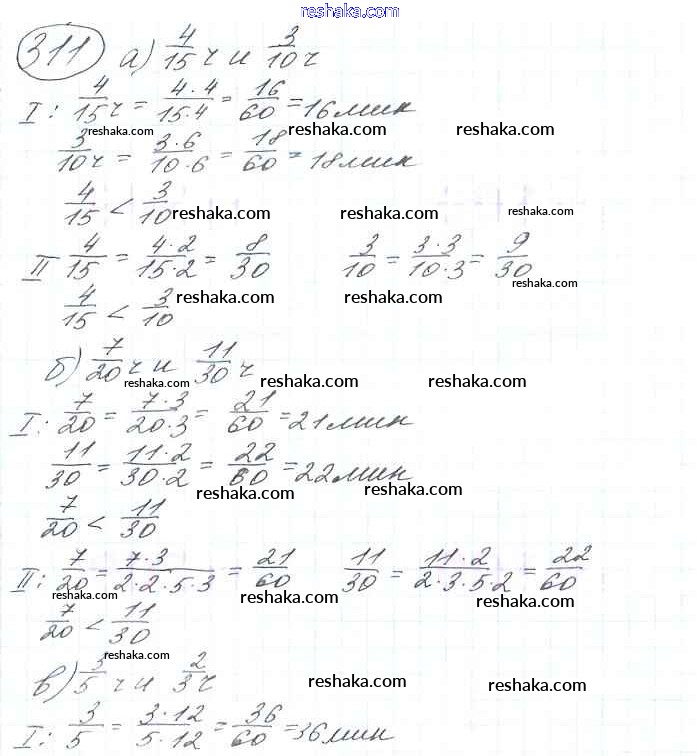 reshaka.com
311 а) 4/15 ч и 3/10 ч
I: 4/15 ч = 4·4/15·4 = 16/60 = 16 мин
reshaka.com reshaka.com reshaka.com
3/10 ч = 3·6/10·6 = 18/60 = 18 мин
4/15 < 3/10
reshaka.com reshaka.com reshaka.com
II 4/15 = 4·2/15·2 = 8/30 3/10 = 3·3/10·3 = 9/30
reshaka.com
4/15 < 3/10
reshaka.com reshaka.com
б) 7/20 ч и 11/30 ч
reshaka.com reshaka.com reshaka.com
I: 7/20 = 7·3/20·3 = 21/60 = 21 мин
11/30 = 11·2/30·2 = 22/60 = 22 мин
reshaka.com reshaka.com
7/20 < 11/30
II: 7/20 = 7·3/2·2·5·3 = 21/60 11/30 = 11·2/2·3·5·2 = 22/60
reshaka.com reshaka.com reshaka.com
7/20 < 11/30
reshaka.com
в) 3/5 ч и 2/3 ч
reshaka.com reshaka.com
I: 3/5 = 3·12/5·12 = 36/60 = 36 мин